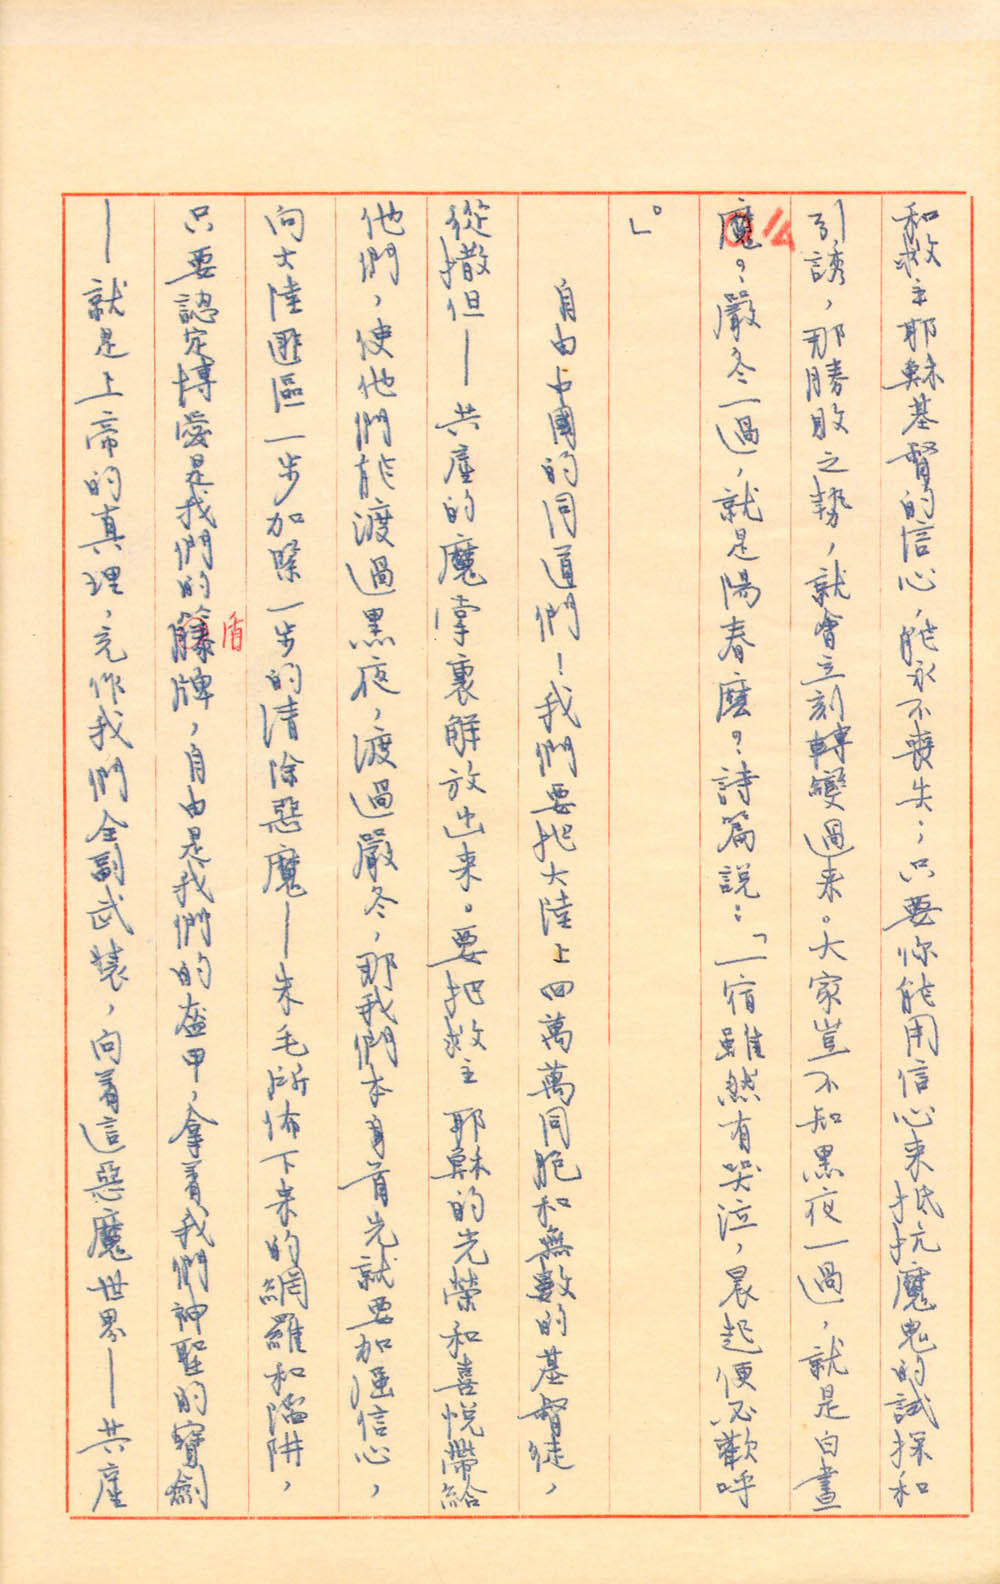 和救主耶穌基督的信心，能永不喪失；只要你能用信心來抵抗魔鬼的試探和
引誘，那勝敗之勢，就會立刻轉變過来。大家豈不知黑夜一過，就是白晝
魔么？嚴冬一過，就是陽春麼？詩篇說：「一宿雖然有哭泣，晨起便必歡呼
。」
自由中國的同道們！我們要把大陸上四萬萬同胞和無數的基督徒，
從撒但—共產的魔掌裏解放出来。要把救主 耶穌的光榮和喜悅帶給
他們，使他們能渡過黑夜，渡過嚴冬，那我們本身首先就要加强信心，
向大陸匪區一步加緊一步的清除惡魔—朱毛所佈下来的網羅和陷阱，
只要認定博愛是我們的籐盾牌，自由是我們的盔甲，拿着我們神聖的寶劍
—就是上帝的真理，充作我們全副武裝，向着這惡魔世界—共產